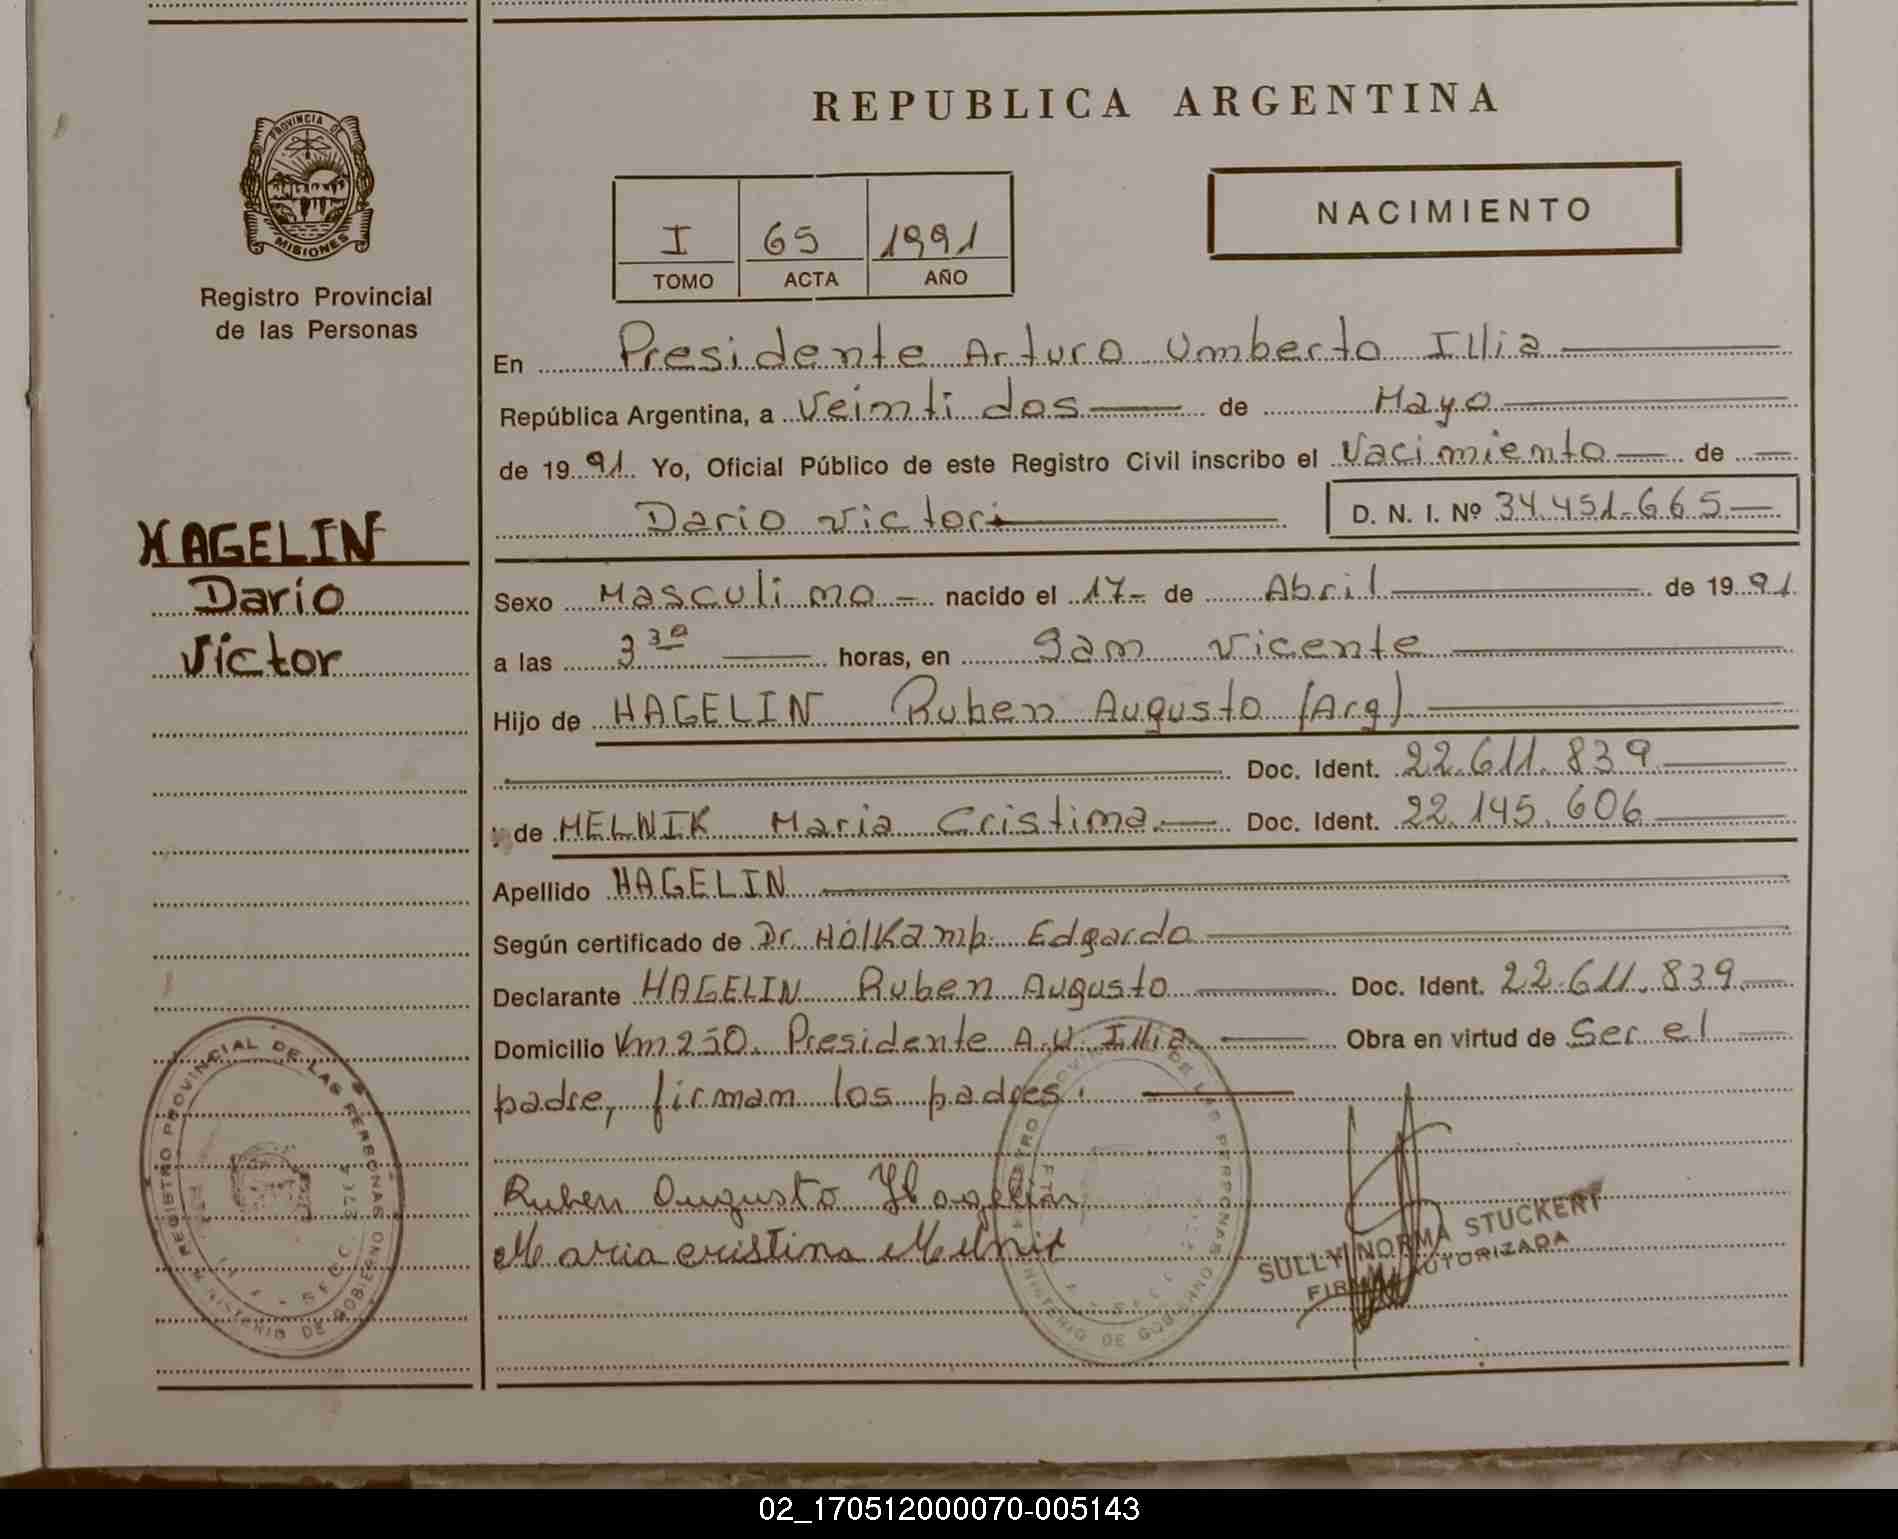 REPUBLICA ARGENTINA
PROVINCIA DE
MISIONES
Registro Provincial
de las Personas
NACIMIENTO
I 65 1991
TOMO ACTA AÑO
En Presidente Arturo Umberto Illia
República Argentina, a Veinti dos de Mayo
de 1991 Yo, Oficial Público de este Registro Civil inscribo el Nacimiento de
Dario Victor D. N. I. Nº 34.451.665
HAGELIN
Darío
Víctor
Sexo Masculino nacido el 17 de Abril de 1991
a las 3 30 horas, en San Vicente
Hijo de HAGELIN Ruben Augusto (Arg)
Doc. Ident. 22.611.839
de MELNIK Maria Cristina Doc. Ident. 22.145.606
Apellido HAGELIN
Según certificado de Dr. Holkamp Edgardo
Declarante HAGELIN Ruben Augusto Doc. Ident. 22.611.839
Domicilio Km 250. Presidente A.U. Illia Obra en virtud de Ser el
padre, firman los padres.
Ruben Augusto Hagelin
Maria cristina Melnik
SULLY NORMA STUCKERT
FIRMA AUTORIZADA
REGISTRO PROVINCIAL DE LAS PERSONAS
MINISTERIO DE GOBIERNO
02_170512000070-005143